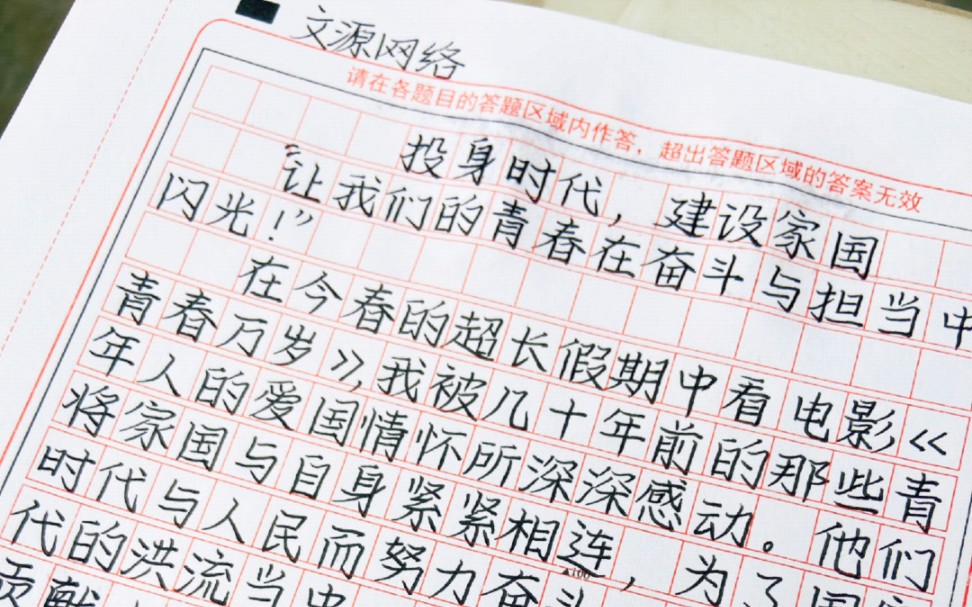 文源网络
请在各题目的答题区域内作答，超出答题区域的答案无效
投身时代，建设家国
“让我们的青春在奋斗与担当中
闪光！”
在今春的超长假期中看电影《
青春万岁》，我被几十年前的那些青
年人的爱国情怀所深深感动。他们
将家国与自身紧紧相连，为了国
时代与人民而努力奋斗
▲100
代的洪流当中
贡献